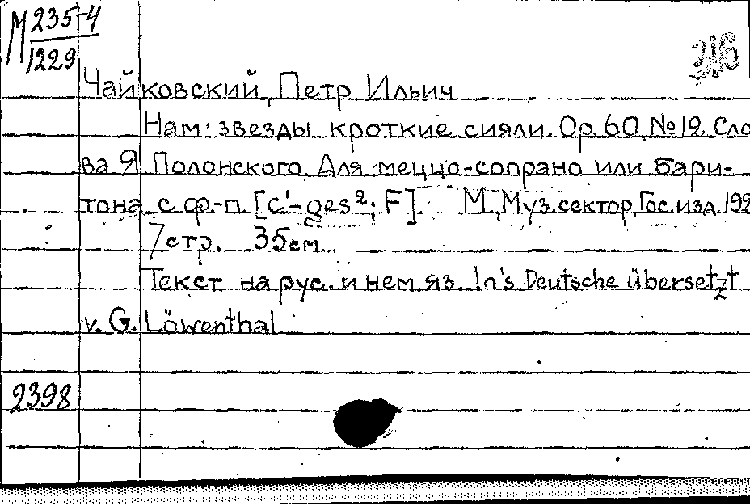 М 235-4
1229
316
Чайковский, Петр Ильич
Нам звезды кроткие сияли. Op. 60, № 12. Сло
ва Я Полонского. Для меццо-сопрано или бари-
тона с ф.-п. [c'-ges²; F]. М., Муз. сектор, Гос. изд. 192
7 стр. 35 см
Текст на рус. и нем. яз. In's Deutsche übersetzt
v. G. Löwenthal
2398